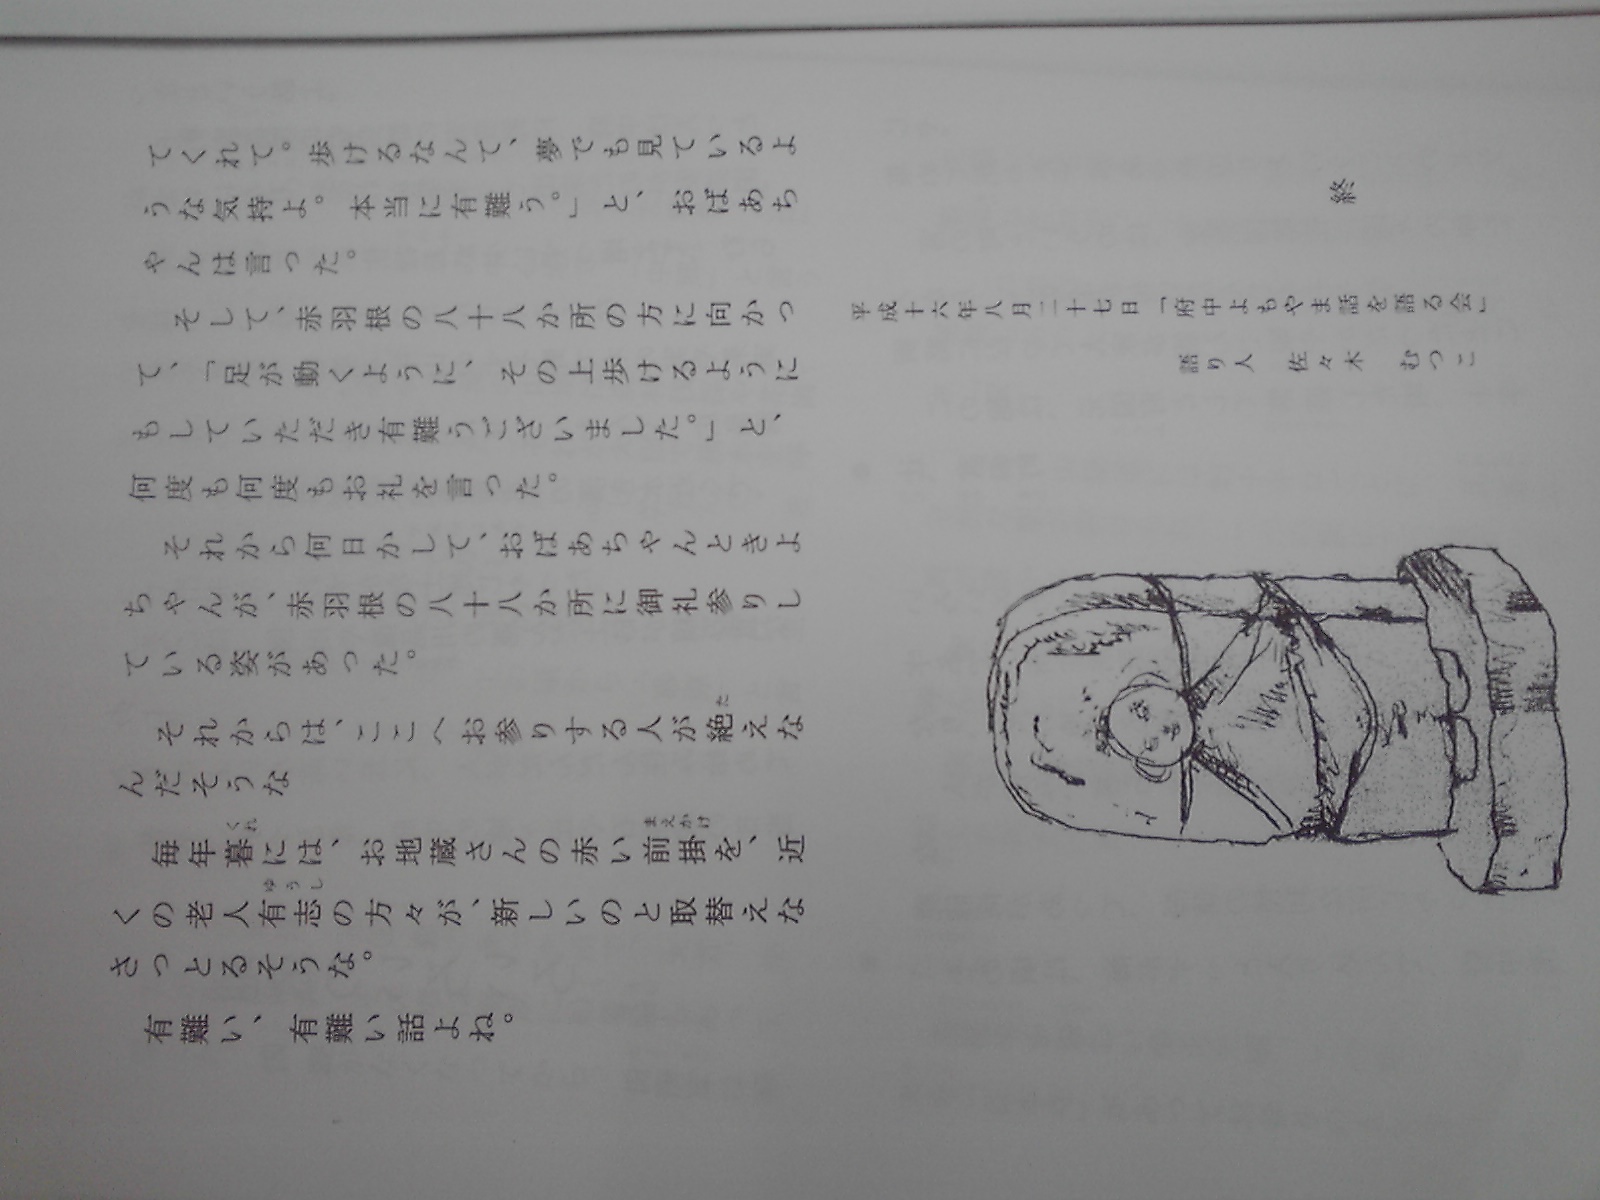 てくれて。歩けるなんて、夢でも見ているよ
うな気持よ。本当に有難う。」と、おばあち
ゃんは言った。
そして、赤羽根の八十八か所の方に向かっ
て、「足が動くように、その上歩けるように
もしていただき有難うございました。」と、
何度も何度もお礼を言った。
それから何日かして、おばあちゃんときよ
ちゃんが、赤羽根の八十八か所に御礼参りし
ている姿があった。
それからは、ここへお参りする人が絶えな
た
んだそうな
毎年暮には、お地蔵さんの赤い前掛を、近
くれ
まえかけ
くの老人有志の方々が、新しいのと取替えな
ゆうし
さっとるそうな。
有難い、有難い話よね。
終
平成十六年八月二十七日「府中よもやま話を語る会」
語り人 佐々木 むつこ